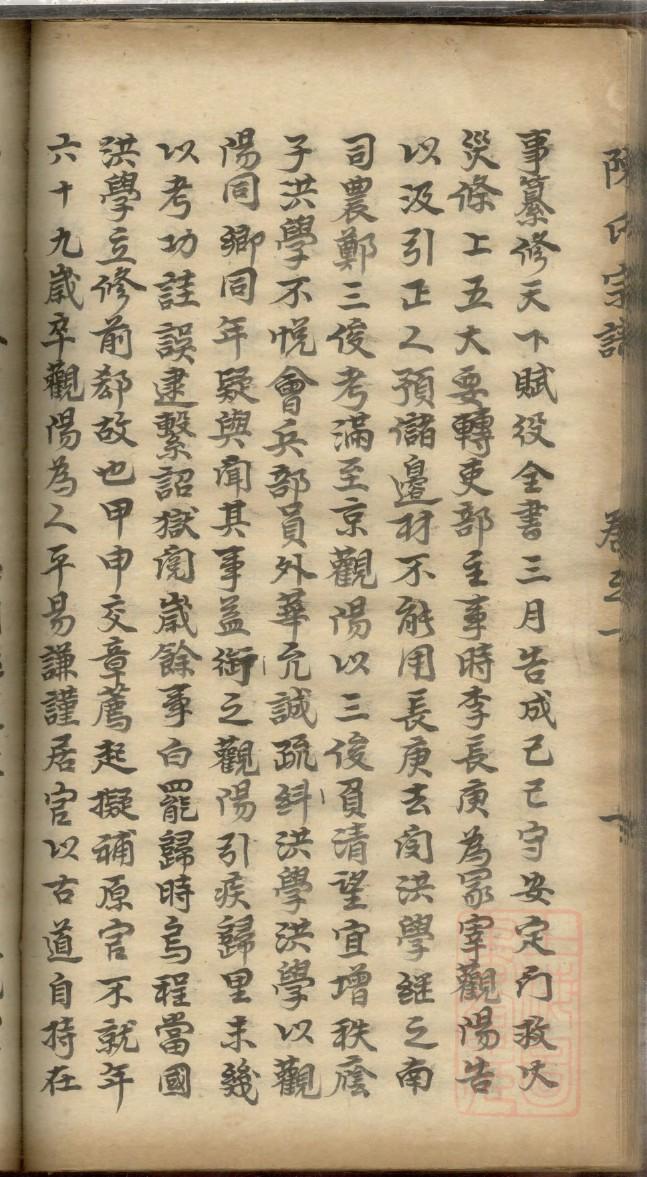 陳氏宗譜
事纂修天下賦役全書三月告成己巳守安定門救火
災條上五大要轉吏部主事時李長庚為冢宰觀陽告
以汲引正人預儲邊材不能用長庚去閔洪學繼之南
司農鄭三俊考滿至京觀陽以三俊負清望宜增秩廕
子洪學不悅會兵部員外華允誠疏糾洪學洪學以觀
陽同鄉同年疑與聞其事益銜之觀陽引疾歸里未幾
以考功詿誤逮繫詔獄閱歲餘事白罷歸時烏程當國
洪學立修前郄故也甲申交章薦起擬補原官不就年
六十九歲卒觀陽為人平易謙謹居官以古道自持在